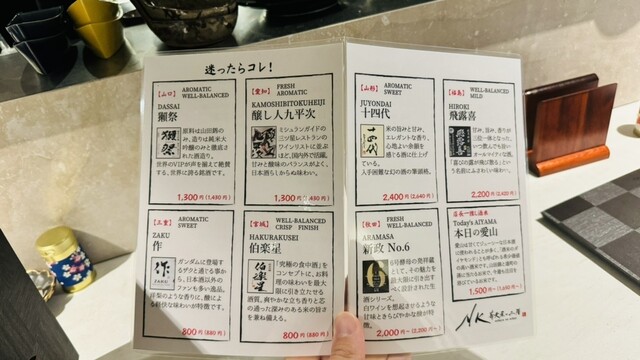 迷ったらコレ!
【山口】
AROMATIC
WELL-BALANCED
DASSAI
獺祭
獺祭
原料は山田錦の
み、造りは純米大
吟醸のみと徹底さ
れた酒造り。
世界のVIPが声を揃えて絶賛
する、世界に誇る銘酒です。
1,300円(1,430円)
【愛知】
FRESH
AROMATIC
KAMOSHIBITOKUHEIJI
醸し人九平次
ミシュランガイドの
三ツ星レストランの
ワインリストに並ぶ
ほど、国内外で活躍。
甘みと酸味のバランスがよく、
日本酒らしからぬ味わい。
1,300円(1,430円)
【三重】
AROMATIC
SWEET
ZAKU
作
作
ZAKU
ガンダムに登場す
るザクと通ずる事か
ら、日本酒以外の
ファンも多い逸品。
800円(880円)
【宮城】
WELL-BALANCED
CRISP FINISH
HAKURAKUSEI
伯楽星
伯楽星
「究極の食中酒」を
コンセプトに、お料
理の味わいを最大
限に引き立たせる
酒質。爽やかな立ち香と芯
の通った深みのある米の旨さ
を兼ね備える。
800円(880円)
【山形】
AROMATIC
SWEET
JUYONDAI
十四代
十四代
米の旨みと甘み、
エレガントな香り、
心地よい余韻を
感じる酒に仕上げ
ている。
入手困難な幻の酒の筆頭格。
2,400円(2,640円)
【福島】
WELL-BALANCED
MILD
HIROKI
飛露喜
甘み、旨み、香りが
三位一体となった、
オールマイティな酒。
「喜びの露が飛び散る」とい
う名前にふさわしい味わい。
2,200円(2,420円)
【秋田】
FRESH
WELL-BALANCED
ARAMASA
新政 No.6
6号酵母の発祥蔵
として、その魅力を
最大限に引き出す
べく設計された生
酒シリーズ。
白ワインを想起させるような
甘味ときらびやかな酸が特
徴。
2,000円〜(2,200円〜)
店長一推し酒米
Today's AIYAMA
本日の愛山
1,500円〜(1,650円〜)
NK